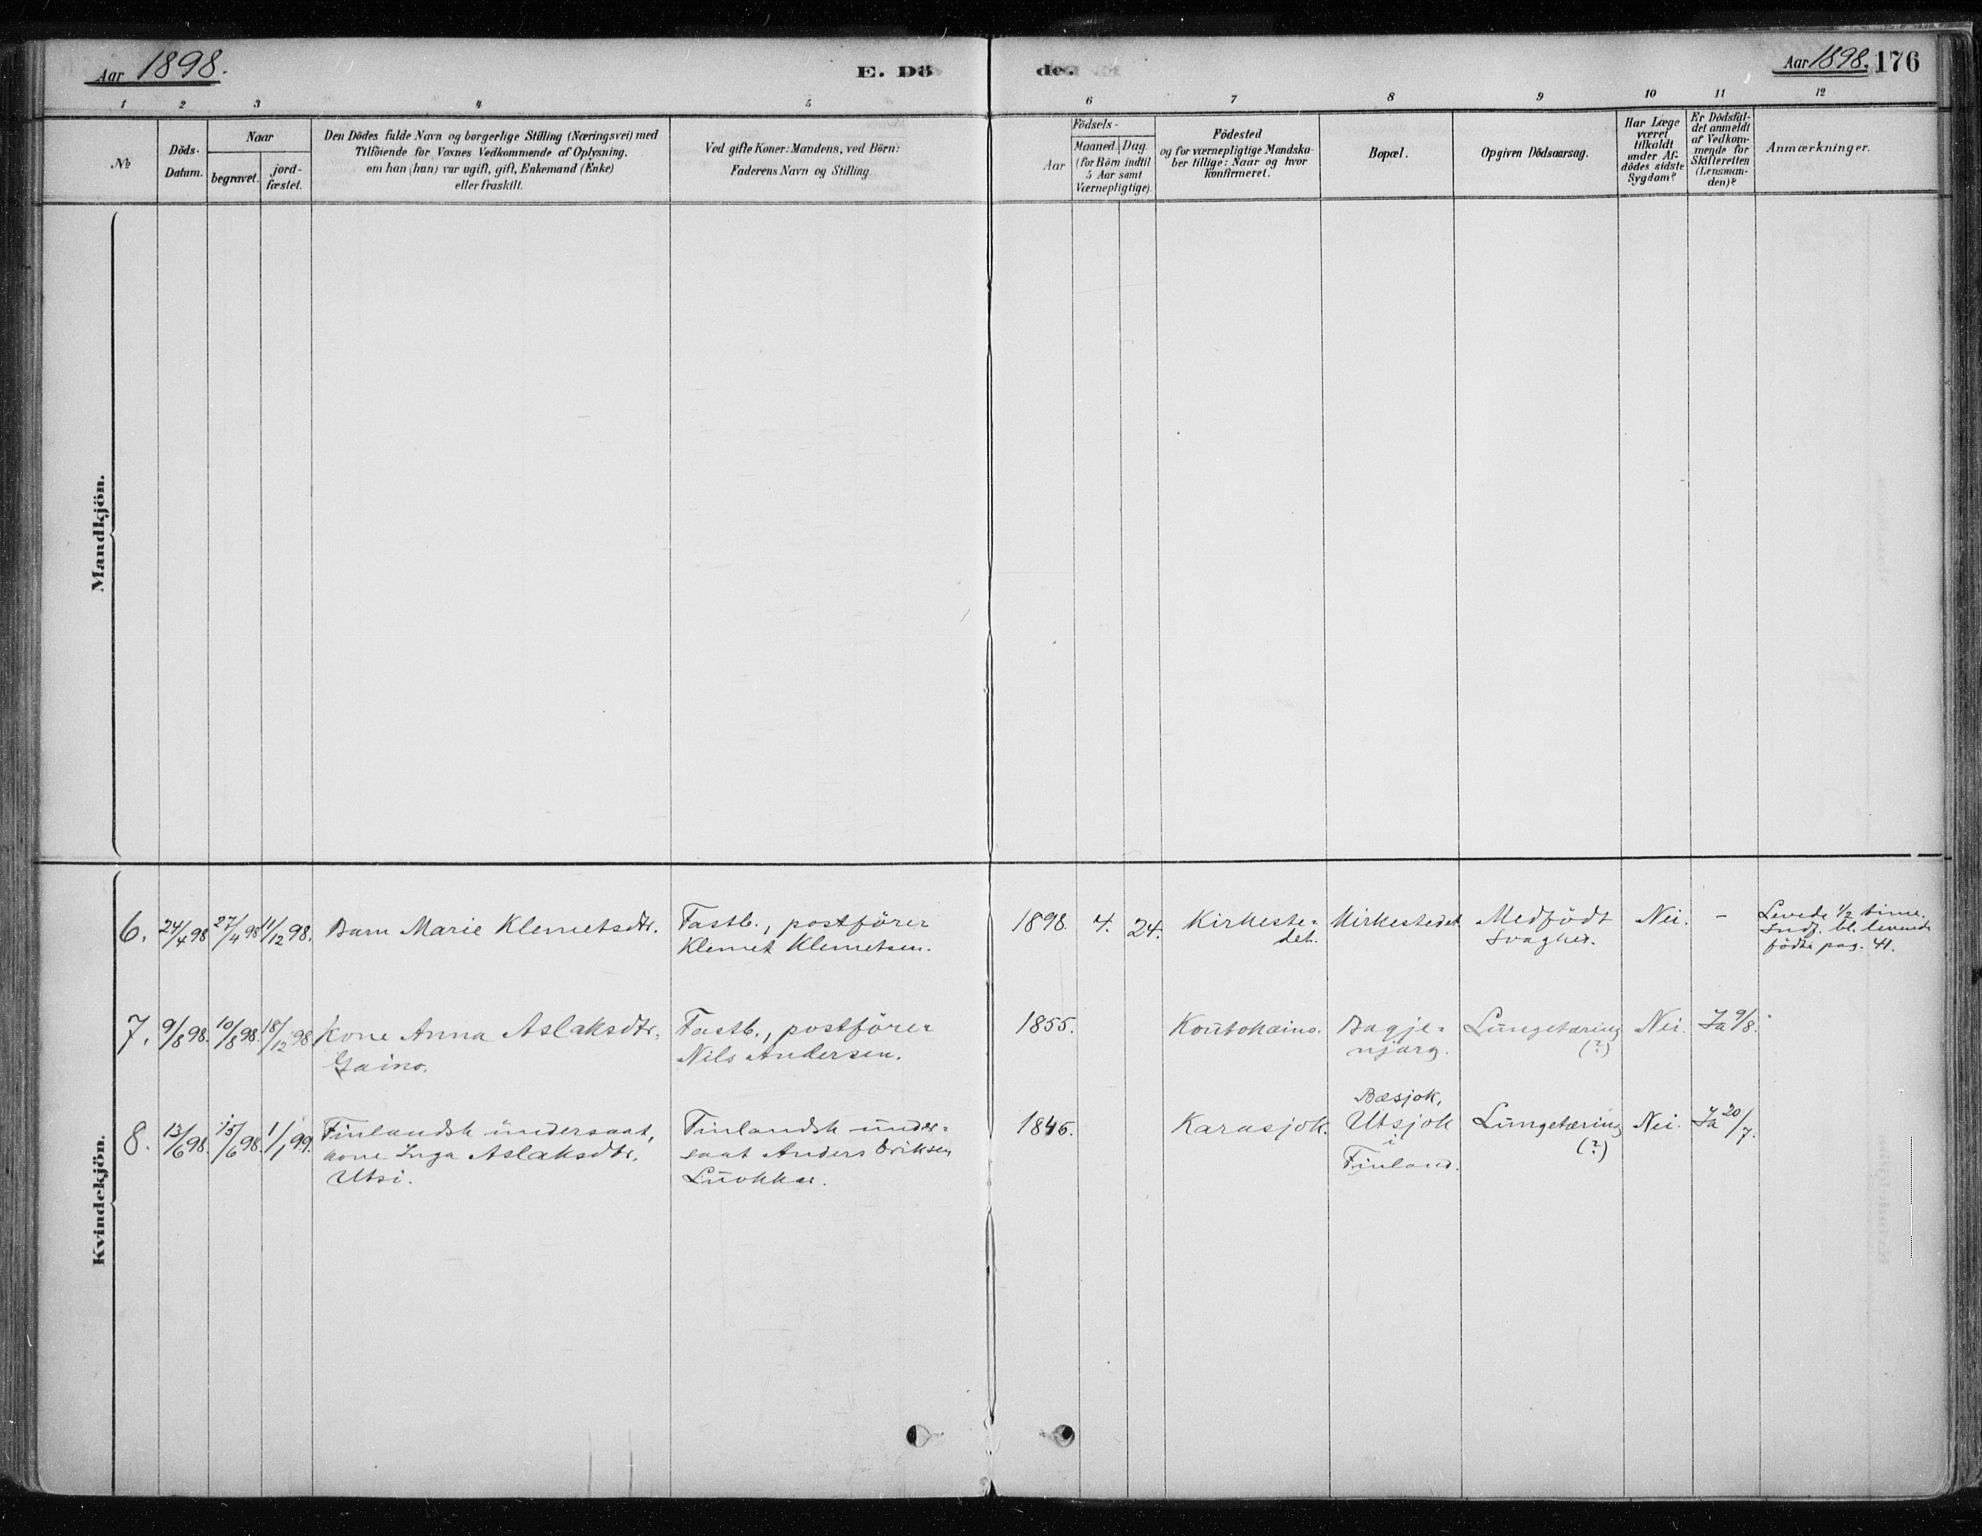 Aar 1898. E. Dö de. Aar 1898. 176
1 2 3 4 5 6 7 8 9 10 11 12
No
Döds-
Datum.
Naar
begravet.
jord-
fæstet.
Den Dödes fulde Navn og borgerlige Stilling (Næringsvei) med
Tilföiende for Voxnes Vedkommende af Oplysning,
om han (hun) var ugift, gift, Enkemand (Enke)
eller fraskilt.
Ved gifte Koner: Mandens, ved Börn:
Faderens Navn og Stilling
Födsels-
Aar
Maaned.
Dag.
(for Börn indtil
5 Aar samt
Værnepligtige).
Födested
og for værnepligtige Mandska-
ber tillige: Naar og hvor
konfirmeret.
Bopæl.
Opgiven Dödsaarsag.
Har Læge
været
tilkaldt
under Af-
dödes sidste
Sygdom?
Er Dödsfal-
det anmeldt
af Vedkom-
mende for
Skifteretten
(Lensman-
den)?
Anmærkninger.
Mandkjön.
Kvindekjön.
6. 24/4 98 27/4 98 11/12 98. Barn Marie Klemetsdtr. Fastb., postförer
Klemet Klemetsen.
1898. 4. 24. Kirkeste-
det.
Kirkestedet.
Medfödt
Svaghed.
Nei. -
Levede 1/2 time.
Indf. bl. levende
födte pag. 41.
7. 9/8 98. 10/8 98. 18/12 98 Kone Anna Aslaksdtr.
Gaino.
Fastb., postförer
Nils Andersen.
1855. Koutokæino.
Bagje-
njarg.
Lungetæring
(?)
Nei. Ja 9/8.
8. 13/6 98. 15/6 98. 1/1 99. Finlandsk undersaat,
kone Inga Aslaksdtr.
Utsi.
Finlandsk under-
saat Anders Eriksen
Luokkar.
1846. Karasjok.
Bæsjok,
Utsjok
i
Finland.
Lungetæring
(?)
Nei. Ja 20/7.